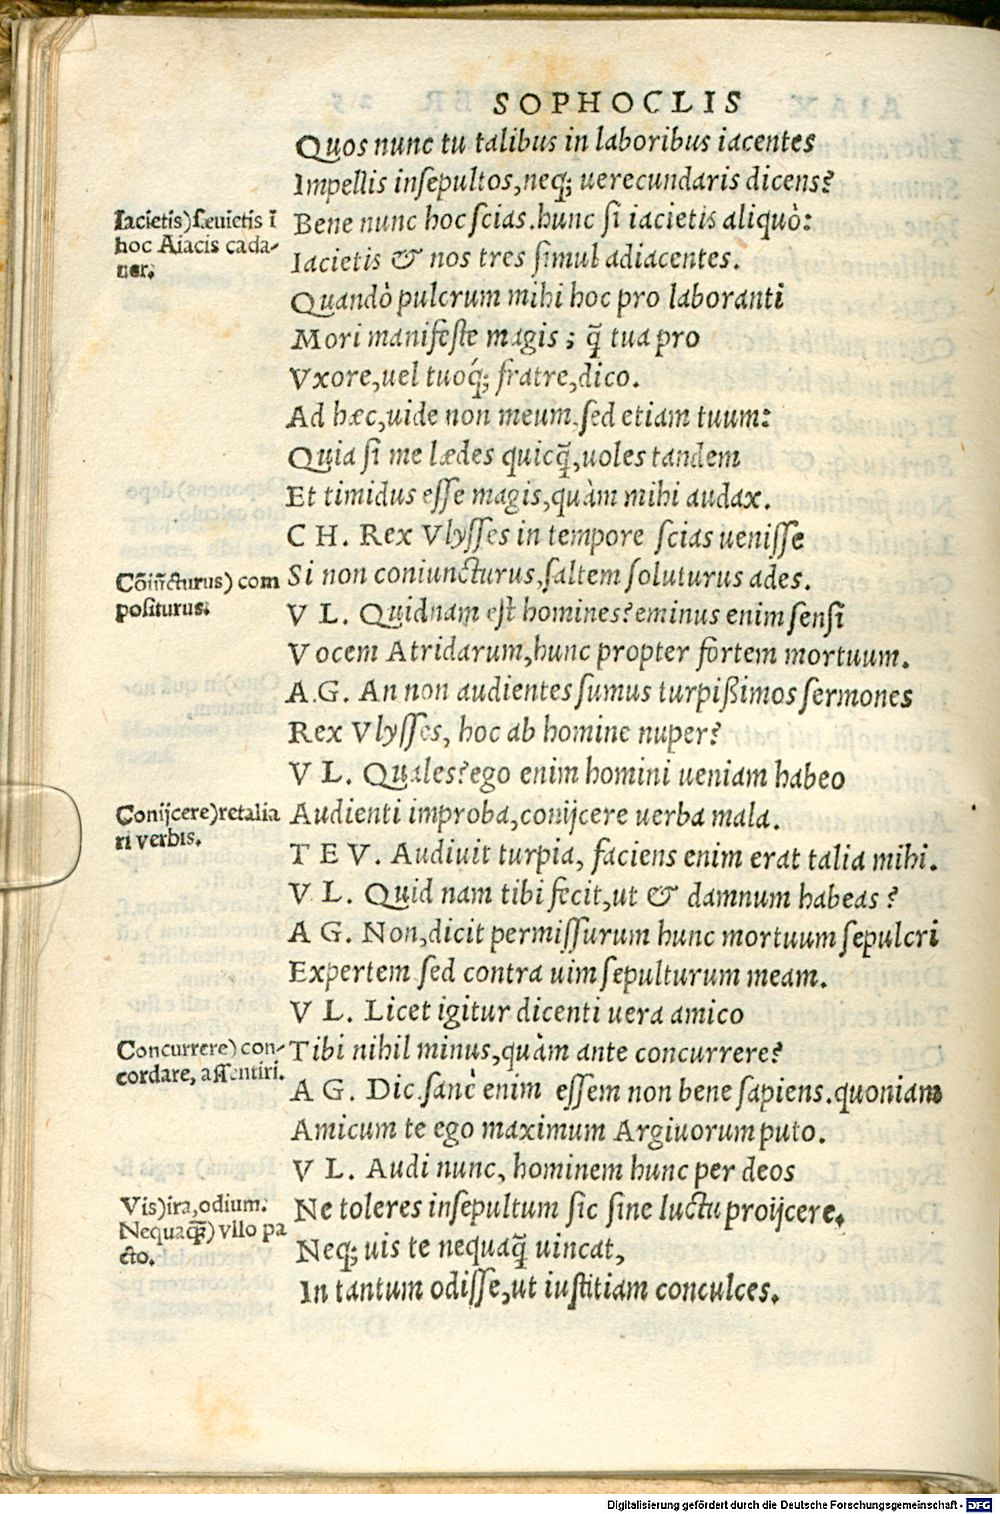 SOPHOCLIS
Quos nunc tu talibus in laboribus iacentes
Impellis insepultos,neq; uerecundaris dicens?
Iacietis)sæuietis ī
hoc Aiacis cada-
uer.
Bene nunc hoc scias.hunc si iacietis aliquò:
Iacietis & nos tres simul adiacentes.
Quandò pulcrum mihi hoc pro laboranti
Mori manifeste magis ; q̃ tua pro
Vxore,uel tuoq́; fratre,dico.
Ad hæc,uide non meum.sed etiam tuum:
Quia si me lædes quicq̃,uoles tandem
Et timidus esse magis,quàm mihi audax.
C H. Rex Vlysses in tempore scias uenisse
Cõiñcturus) com
positurus.
Si non coniuncturus,saltem soluturus ades.
V L. Quidnam est homines?eminus enim sensi
Vocem Atridarum,hunc propter fortem mortuum.
A.G. An non audientes sumus turpißimos sermones
Rex Vlysses, hoc ab homine nuper?
V L. Quales?ego enim homini ueniam habeo
Conijcere)retalia
ri verbis.
Audienti improba,conijcere uerba mala.
T E V. Audiuit turpia, faciens enim erat talia mihi.
V L. Quid nam tibi fecit,ut & damnum habeas ?
A G. Non,dicit permissurum hunc mortuum sepulcri
Expertem.sed contra uim sepulturum meam.
V L. Licet igitur dicenti uera amico
Concurrere) con-
cordare, assentiri.
Tibi nihil minus,quàm ante concurrere?
A G. Dic.sanè enim essem non bene sapiens.quoniam
Amicum te ego maximum Argiuorum puto.
V L. Audi nunc, hominem hunc per deos
Vis)ira,odium.
Nequaq̃) vllo pa
cto.
Ne toleres insepultum sic sine luctu proijcere.
Neq; uis te nequaq̃ uincat,
In tantum odisse,ut iustitiam conculces.
Digitalisierung gefördert durch die Deutsche Forschungsgemeinschaft - DFG